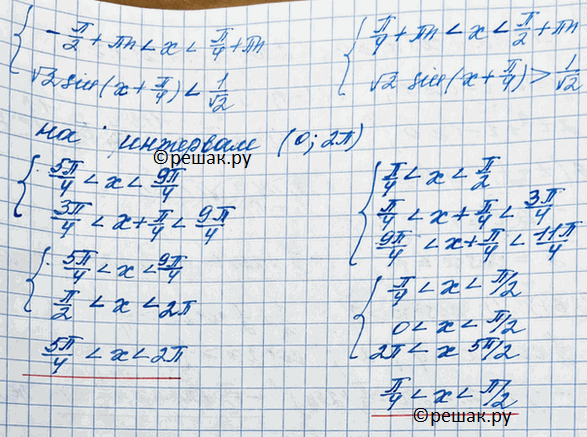 -π/2 + πn < x < π/4 + πn
√2 sin(x + π/4) < 1/√2
π/4 + πn < x < π/2 + πn
√2 sin(x + π/4) > 1/√2
на интервале (0; 2π)
©решак.ру
5π/4 < x < 9π/4
3π/4 < x + π/4 < 9π/4
5π/4 < x < 9π/4
π/2 < x < 2π
5π/4 < x < 2π
π/4 < x < π/2
π/4 < x + π/4 < 3π/4
9π/4 < x + π/4 < 11π/4
π/4 < x < π/2
0 < x < π/2
2π < x 5π/2
π/4 < x < π/2
©решак.ру